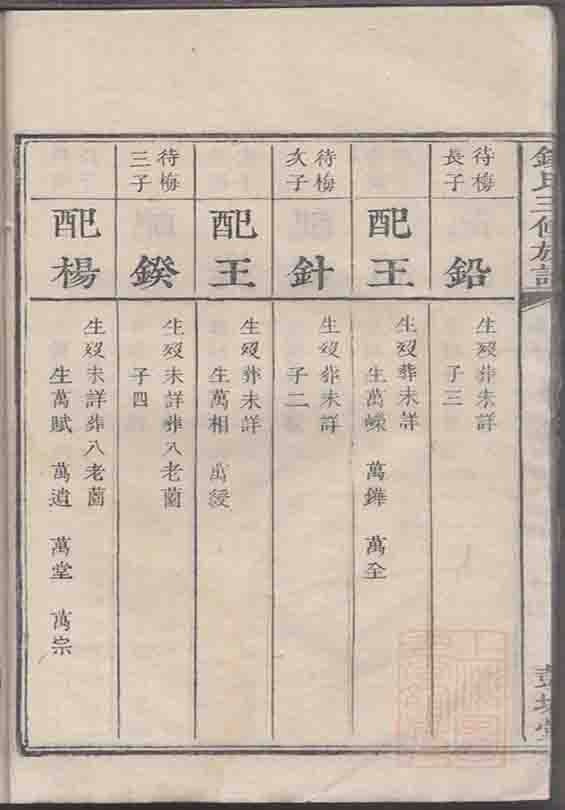 三修族譜
待梅
長子
鉛
生歿葬未詳
子三
配王
生歿葬未詳
生萬嶸 萬鏵 萬全
待梅
次子
針
生歿葬未詳
子二
配王
生歿葬未詳
生萬相 萬綬
待梅
三子
鍨
生歿未詳葬八老薗
子四
配楊
生歿未詳葬八老薗
生萬賦 萬遺 萬堂 萬宗